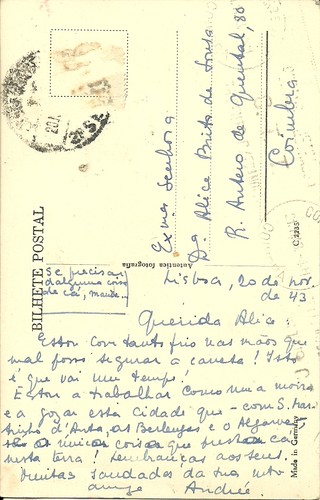 BILHETE POSTAL
Autentica fotografia
C 2235
Made in Germany
Exma Senhora
Da Alice Brito de Sousa
R. Antero de Quental, 80
Coimbra
Se precisar
dalguma coisa
de cá, mande...
Lisboa, 20 de nov.
de 43
Querida Alice:
Estou com tanto frio nas mãos que
mal posso segurar a caneta! Isto
é que vai um tempo!
Estou a trabalhar como uma moira
e a gozar esta cidade que - com S. Mar
tinho d'Anta, as Berlengas e o Algarve
são as únicas coisas que prestam cá
nesta terra! Lembranças aos seus.
Muitas saudades da sua mto
amiga Andrée